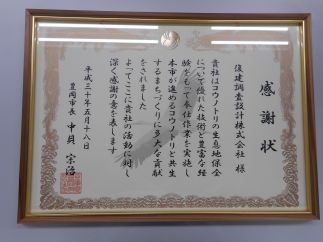 感謝状
復建調査設計株式会社 様
貴社はコウノトリの生息地保全
について優れた技術と豊富な経
験をもって奉仕作業を実施し
本市が進めるコウノトリと共生
するまちづくりに多大な貢献
をされました
よってここに貴社の活動に対し
深く感謝の意を表します
平成三十年五月十八日
豊岡市長 中貝宗治